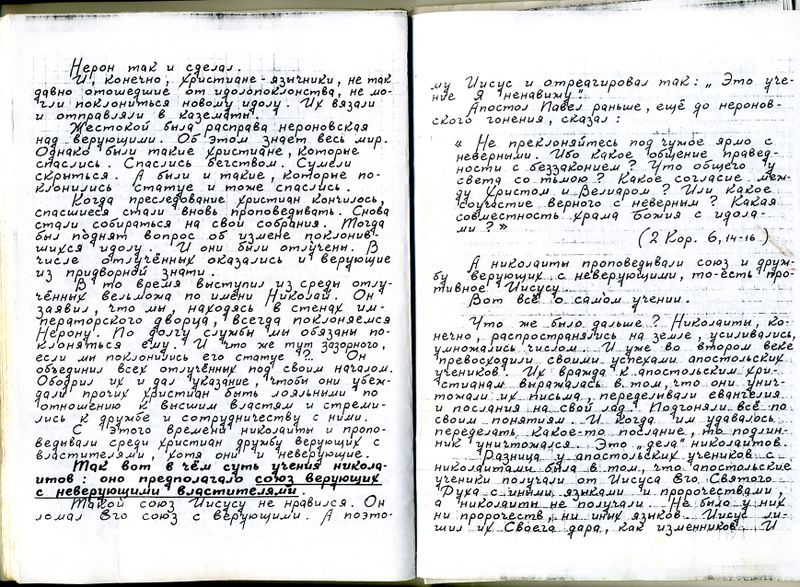 Нерон так и сделал.
И, конечно, христиане-язычники, не так
давно отошедшие от идолопоклонства, не мо-
гли поклониться новому идолу. Их вязали
и отправляли в казематы.
Жестокой была расправа нероновская
над верующими. Об этом знает весь мир.
Однако были такие христиане, которые
спаслись. Спаслись бегством. Сумели
скрыться. А были и такие, которые по-
клонились статуе и тоже спаслись.
Когда преследование христиан кончилось,
спасшиеся стали вновь проповедывать. Снова
стали собираться на свои собрания. Тогда
был поднят вопрос об измене поклонив-
шихся идолу. И они были отлучены. В
числе отлучённых оказались и верующие
из придворной знати.
В то время выступил из среды отлу-
чённых вельможа по имени Николай. Он
заявил, что мы, находясь в стенах им-
ператорского дворца, всегда поклоняемся
Нерону. По долгу службы мы обязаны по-
клоняться ему. И что же тут зазорного,
если мы поклонились его статуе ?.. Он
объединил всех отлучённых под своим началом.
Ободрил их и дал указание, чтобы они убеж-
дали прочих христиан быть лояльными по
отношению к высшим властям и стреми-
лись к дружбе и сотрудничеству с ними.
С этого времени николаиты и пропо-
ведывали среди христиан дружбу верующих с
властителями, хотя они и неверующие.
Так вот в чём суть учения никола-
итов: оно предполагало союз верующих
с неверующими властителями.
Такой союз Иисусу не нравился. Он
ломал Его союз с верующими. А поэто-
му Иисус и отреагировал так: „Это уче-
ние Я ненавижу".
Апостол Павел раньше, ещё до неронов-
ского гонения, сказал:
« Не преклоняйтесь под чужое ярмо с
неверными. Ибо какое общение правед-
ности с беззаконием? Что общего у
света со тьмою? Какое согласие меж-
ду Христом и Велиаром? Или какое
соучастие верного с неверным? Какая
совместность храма Божия с идола-
ми?»
(2 Кор. 6,14-16)
А николаиты проповедывали союз и друж-
бу верующих с неверующими, то-есть про-
тивное Иисусу.
Вот всё о самом учении.
Что же было дальше? Николаиты, ко-
нечно, распространялись на земле, усиливались,
умножались числом. И уже во втором веке
превосходили своими успехами апостольских
учеников. Их вражда к апостольским хри-
стианам выражалась в том, что они унич-
тожали их письма, переделывали евангелия
и послания на свой лад. Подгоняли всё по
своим понятиям. И когда им удавалось
переделать какое-то послание, то подлин-
ник уничтожался. Это „дела" николаитов.
Разница у апостольских учеников с
николаитами была в том, что апостольские
ученики получали от Иисуса Его Святого
Духа с иными языками и пророчествами,
а николаиты не получали. Не было у них
ни пророчеств, ни иных языков. Иисус ли-
шил их Своега дара, как изменников. И